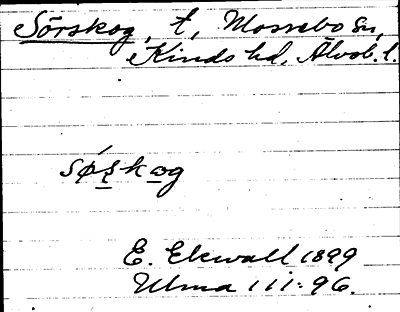 Sörskog, t, Mossebo sn,
Kinds hd, Älvsb. l.
søʂkɔg
E. Ekwall 1899
Ulma 111:96.